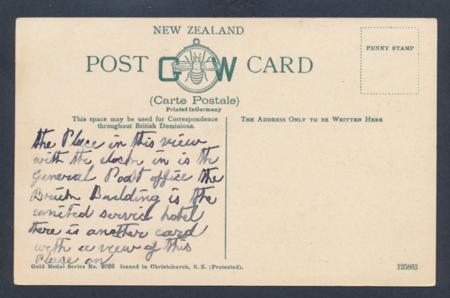 NEW ZEALAND
POST G W CARD
(Carte Postale)
Printed in Germany
PENNY STAMP
This space may be used for Correspondence
throughout British Dominions.
THE ADDRESS ONLY TO BE WRITTEN HERE
the Place in this view
with the clock in is th
General Post office the
Brick Building is the
united service hotel
there is another card
with a view of this
Place on
Gold Medal Series No. 2026 Issued in Christchurch, N. Z. (Protected).
125863